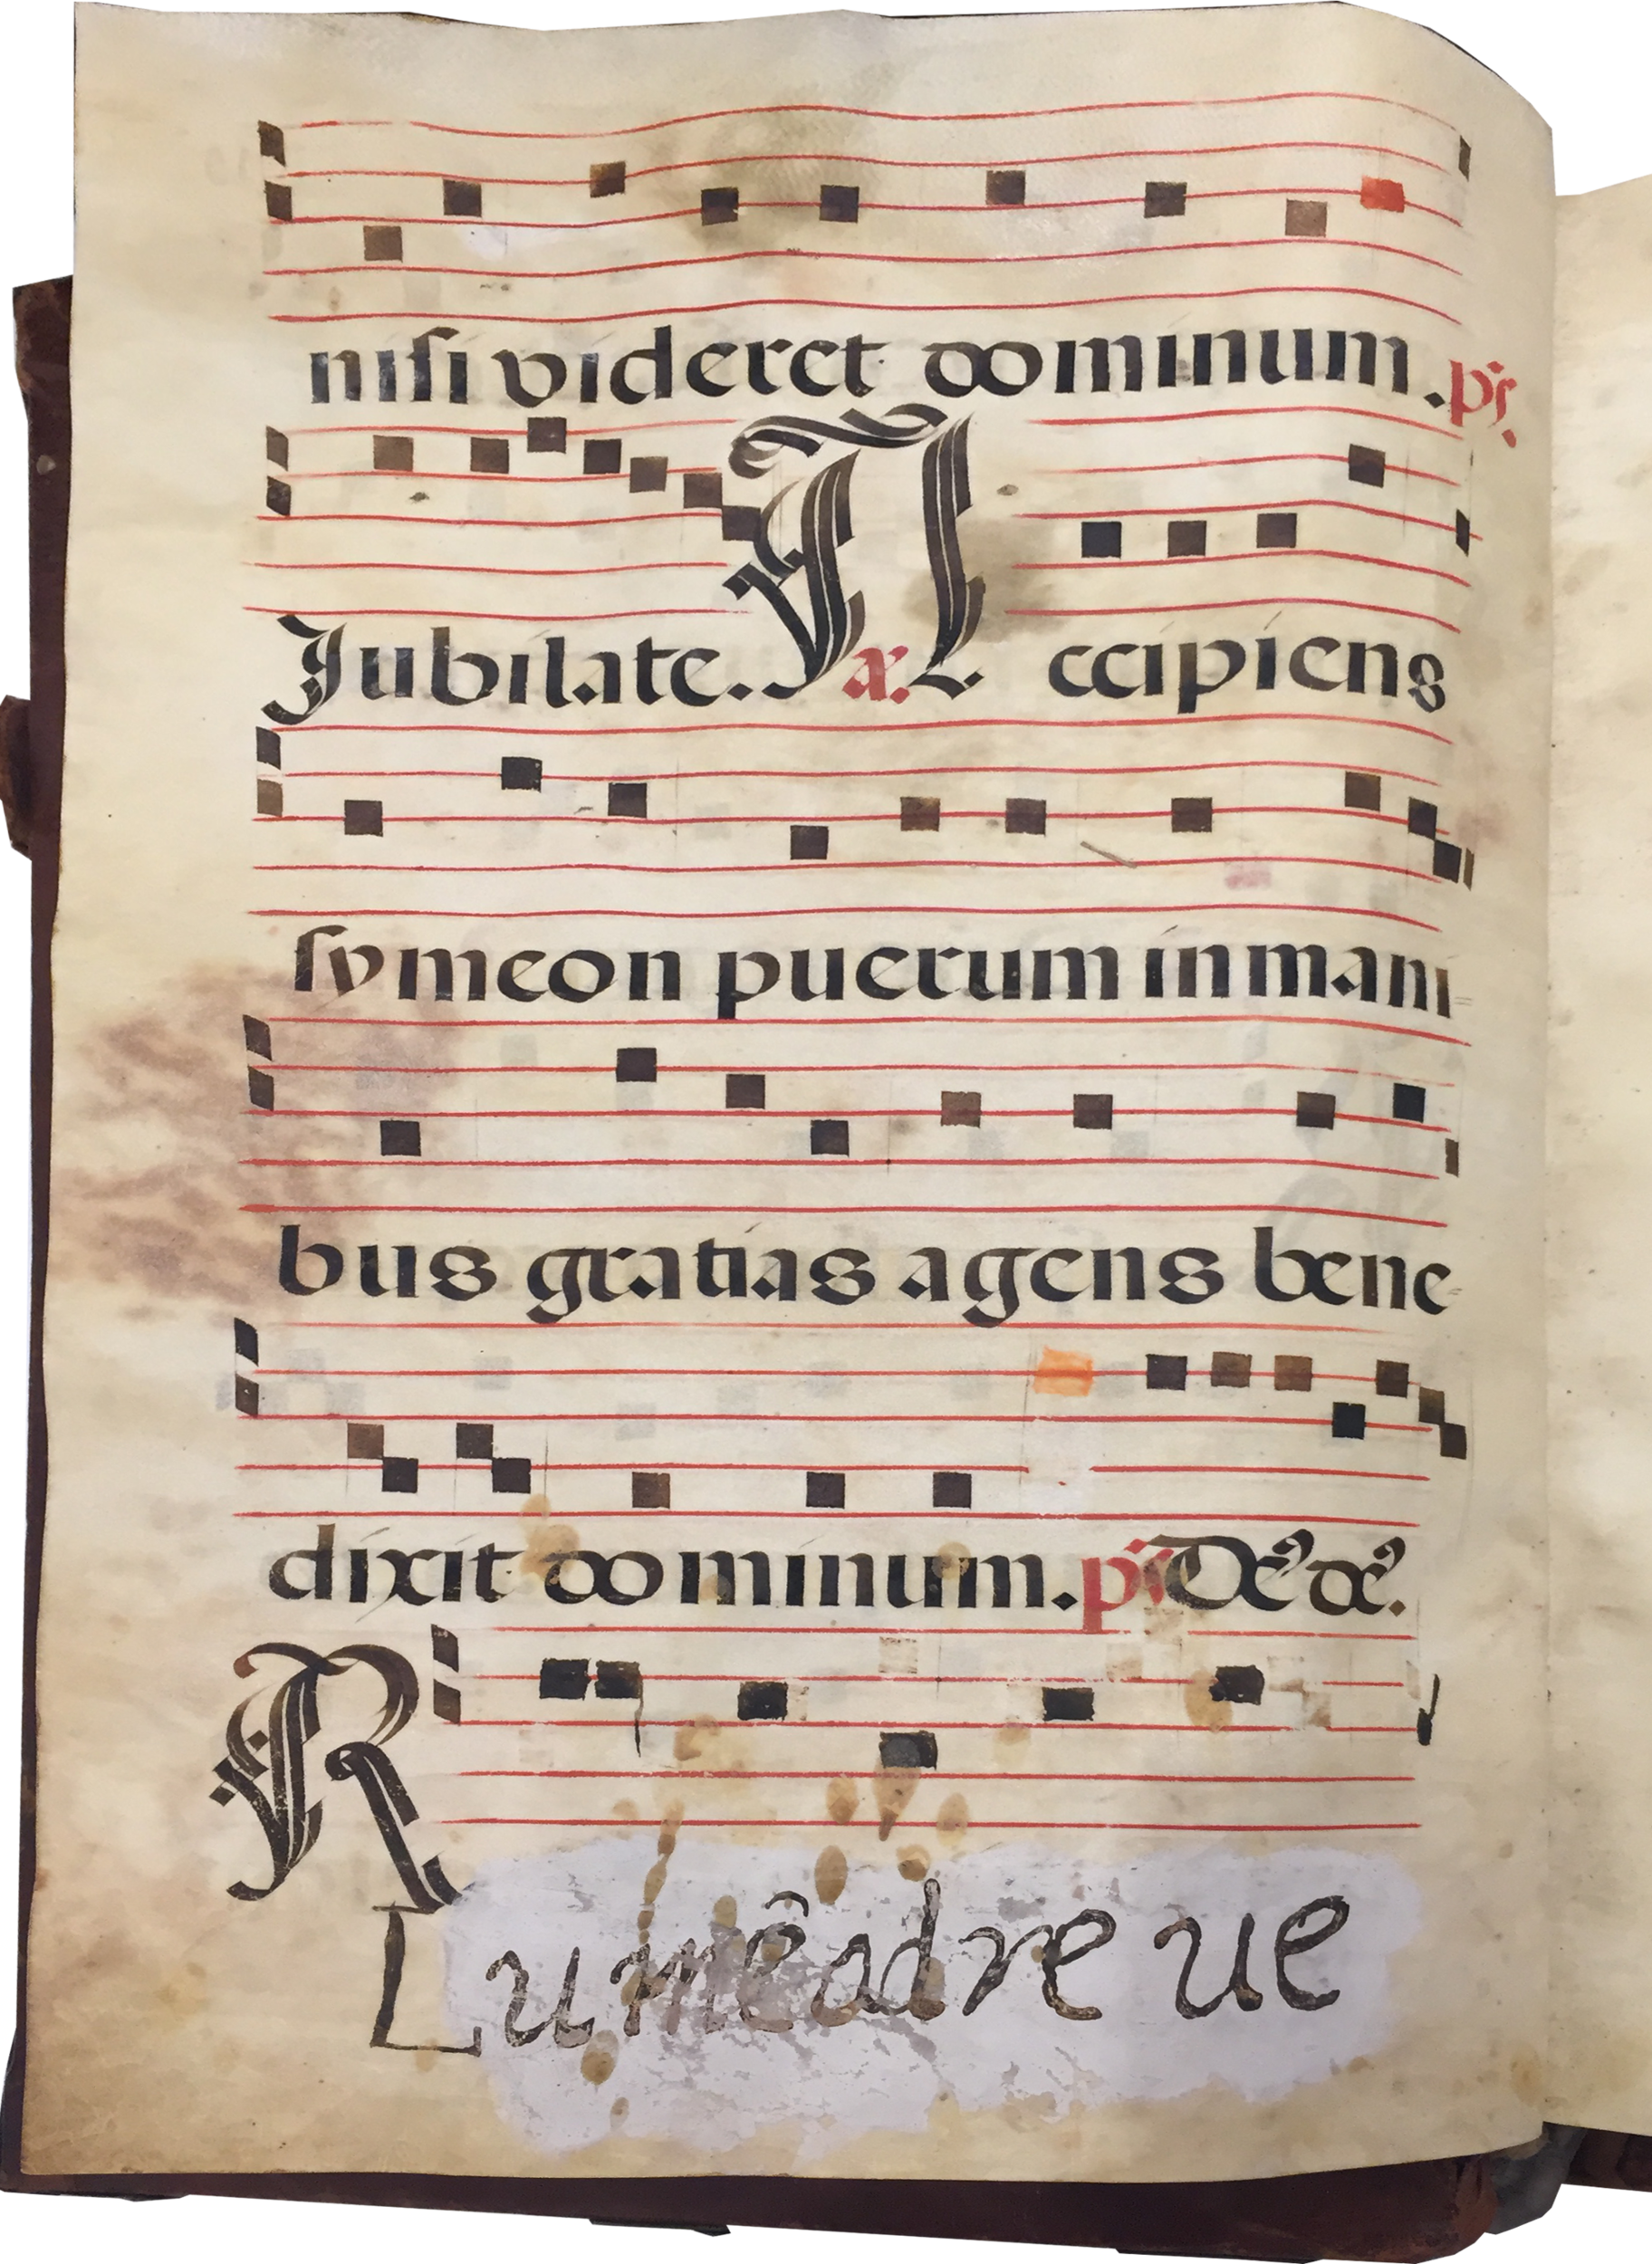 nisi videret dominum. ps.
Jubilate. a. Accipiens
symeon puerum in mani-
bus gratias agens bene-
dixit dominum. ps Ds ds.
R
Lumē ad re ue